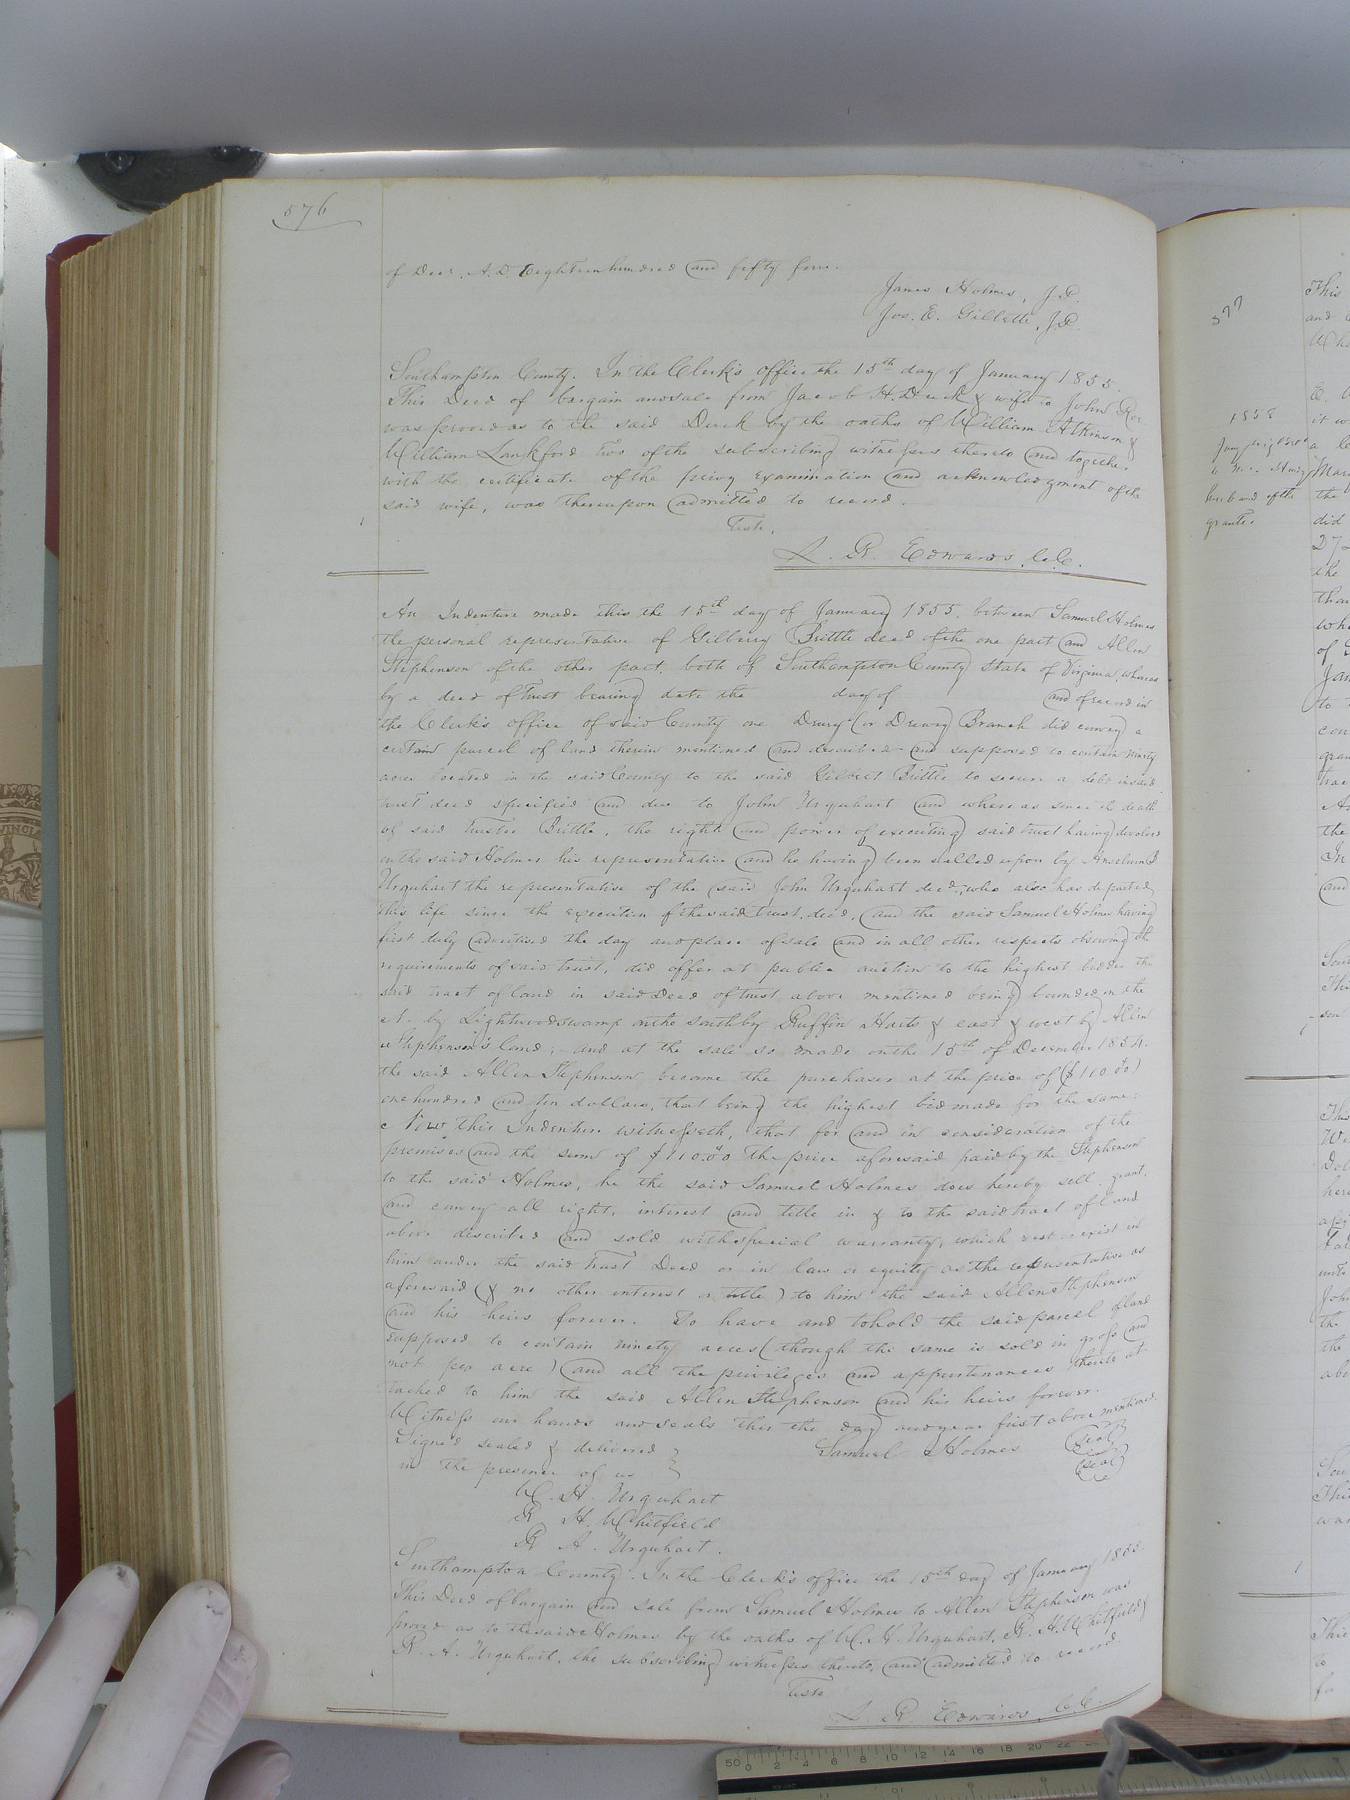 576
of Decr. A.D. Eighteen hundred and fifty four.
James Holmes, J.P.
Jos. E. Gillette, J.P.
Southampton County. In the Clerk's office the 15th day of January 1855.
This Deed of bargain and sale from Jacob H. Duck & wife to John
was proved as to the said Duck by the oaths of William Atkinson &
William Lankford two of the subscribing witnesses thereto and together
with the certificate of the privy examination and acknowledgment of the
said wife, was thereupon admitted to record.
Teste,
L. R. Edwards, C.C.
An Indenture made this the 15th day of January 1855, between Samuel Holmes
the personal representative of Gilberry Brittle decd of the one part and Allen
Stephenson of the other part, both of Southampton County State of Virginia, whereas
by a deed of Trust bearing date the day of and of record in
the Clerk's office of said County one Drury (or Drewry) Branch did convey a
certain parcel of land therein mentioned and described and supposed to contain ninety
acres located in the said County to the said Gilbert Brittle to secure a debt in said
trust deed specified and due to John Urquhart and whereas since the death
of said Trustee Brittle, the right and power of executing said trust having devolved
on the said Holmes his representative and he having been called upon by Anselm B
Urquhart the representative of the said John Urquhart decd, who also has departed
this life since the execution of the said trust deed, and the said Samuel Holmes having
first duly advertised the day and place of sale and in all other respects observing the
requirements of said trust, did offer at public auction to the highest bidder the
said tract of land in said Deed of trust above mentioned being bounded on the
N. by Lightwood swamp on the south by Ruffin Harts & east & west by Allen
Stephenson's land, and at the sale so made on the 15th of December 1854.
the said Allen Stephenson became the purchaser at the price of ($110.00)
one hundred and ten dollars, that being the highest bid made for the same:
Now this Indenture witnesseth, that for and in consideration of the
premises and the sum of $110.00 the price aforesaid paid by the Stephenson
to the said Holmes, he the said Samuel Holmes does hereby sell, grant,
and convey all right, interest and title in & to the said tract of land
above described and sold with special warranty, which vest or exist in
him under the said Trust Deed or in law or equity as the representative as
aforesaid (& no other interest or title) to him the said Allen Stephenson
and his heirs forever. To have and to hold the said parcel of land
supposed to contain ninety acres (though the same is sold in gross and
not per acre) and all the privileges and appurtenances thereto at
tached to him the said Allen Stephenson and his heirs forever.
Witness our hands and seals this the day and year first above mentioned.
Signed sealed & delivered } Samuel Holmes (seal)
in the presence of us } (seal)
W. H. Urquhart
R. H. Whitfield
R. A. Urquhart.
Southampton County. In the Clerk's office the 15th day of January 1855.
This Deed of bargain and sale from Samuel Holmes to Allen Stephenson was
proved as to the said Holmes by the oaths of W. H. Urquhart, R. H. Whitfield &
R. A. Urquhart, the subscribing witnesses thereto, and admitted to record.
Teste
L. R. Edwards, C.C.
577
1858
husband of the
grantee